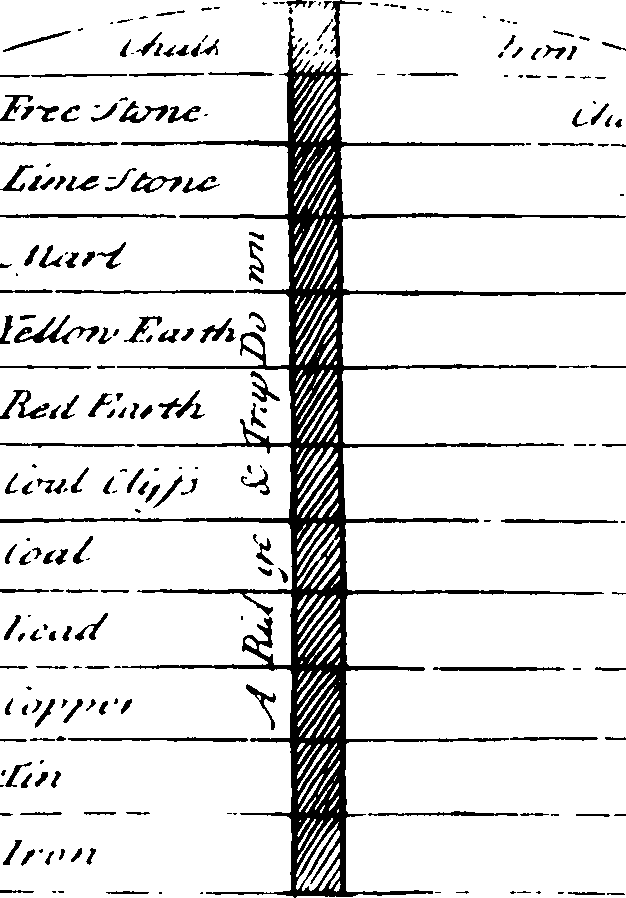 Chalk
Iron
Free-Stone
Lime-Stone
Marl
Yellow Earth
Red Earth
Coal Cliffs
Coal
Lead
Copper
Tin
Iron
A Ridge & Trap Down